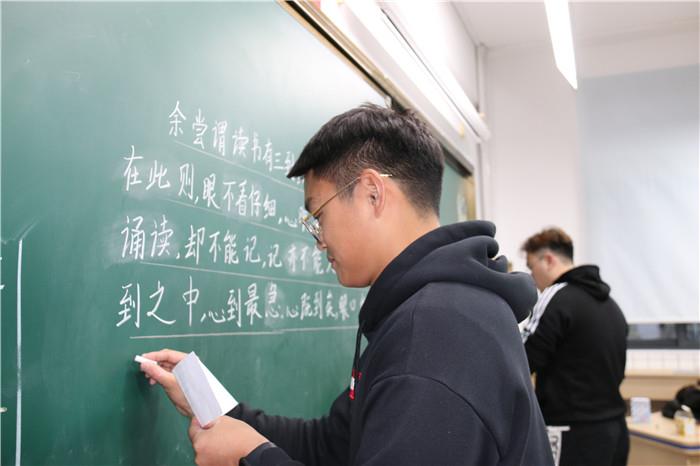 余尝谓读书有三到
在此则,眼不看仔细,心
诵读,却不能记,记亦不能
到之中,心到最急,心既到矣,眼口